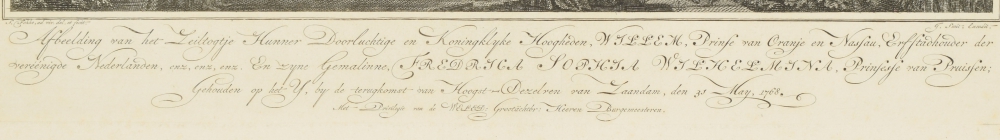 Afbeelding van het Zeiltogtje Hunner Doorluchtige en Koningklyke Hoogheden, WILLEM, Prinse van Oranje en Nassau, Erfstadhouder der
vereenigde Nederlanden, enz, enz, enz. En zyne Gemalinne, FREDRICA SOPHIA WILHELMINA, Prinsesse van Pruissen;
Gehouden op het Y, by de terugkomst van Hoogst-Dezelven van Zaandam, den 31 May, 1768.
Met Privilegie van de WELED: Grootachtb: Heeren Burgemeesteren.